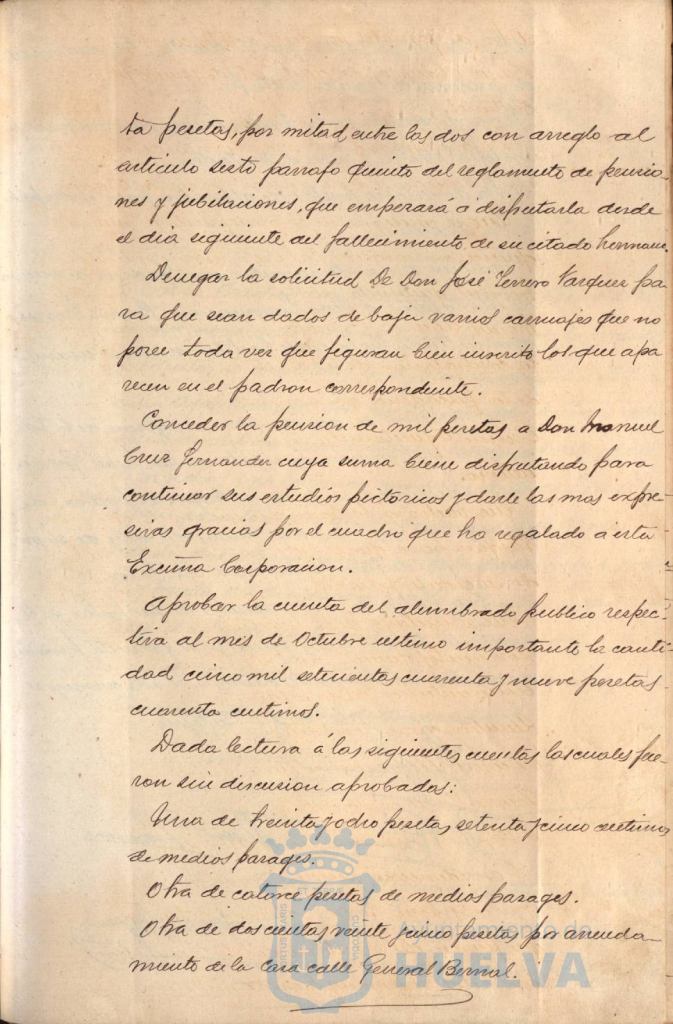 ta pesetas, por mitad entre las dos con arreglo al
articulo sesto parrafo quinto del reglamento de pensio-
nes y jubilaciones, que empezará á disfrutarla desde
el dia siguiente del fallecimiento de su citado hermano.
Denegar la solicitud De Don José Terrero Vazquez pa-
ra que sean dados de baja varios carruajes que no
posee toda vez que figuran bien inscrito los que apa
recen en el padron correspondiente.
Conceder la pension de mil pesetas a Don Manuel
Cruz Fernandez cuya suma viene disfrutando para
continuar sus estudios pictoricos y darle las mas expre-
sivas gracias por el cuadro que ha regalado á esta
Excma Corporacion.
Aprobar la cuenta del alumbrado publico respec-
tiva al mes de Octubre ultimo importante la canti-
dad cinco mil setecientas cuarenta y nueve pesetas
cuarenta centimos.
Dada lectura á las siguientes cuentas las cuales fue-
ron sin discusion aprobadas:
Una de treinta y ocho pesetas setenta y cinco centimos
de medios pasages.
Otra de catorce pesetas de medios pasages.
Otra de doscientas veinte y cinco pesetas por arrenda-
miento de la Casa calle General Bernal.
Ayuntamiento de
HUELVA